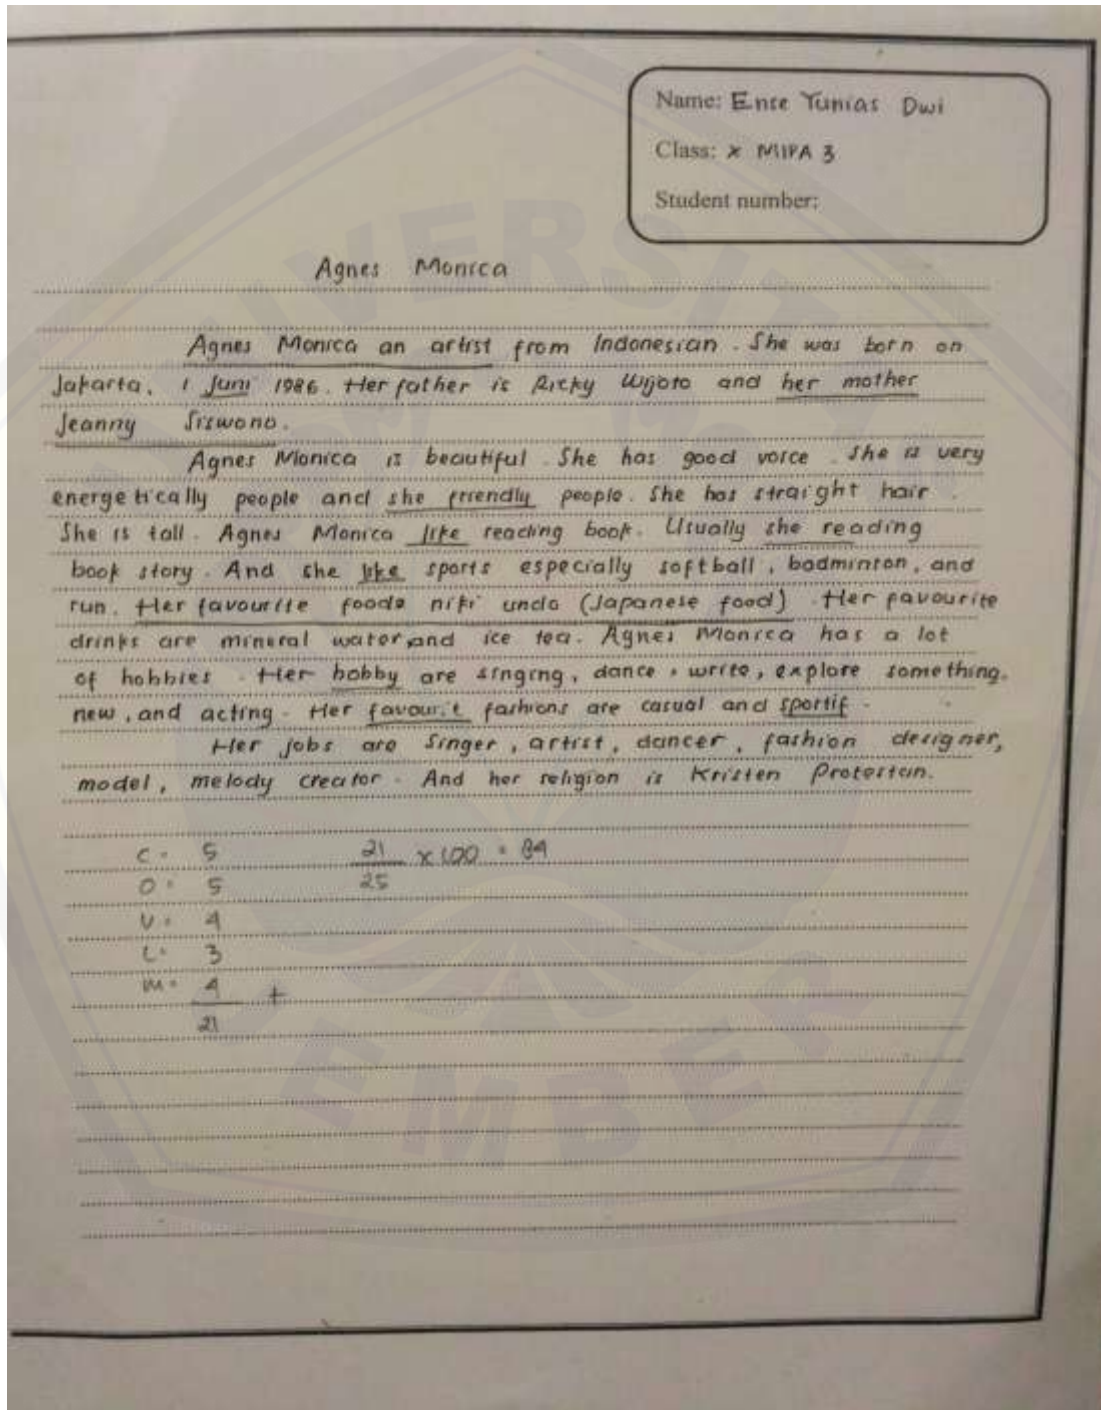 Name: Ense Yunias Dwi
Class: X MIPA 3
Student number:
Agnes Monica
Agnes Monica an artist from Indonesian. She was born on
Jakarta, 1 Juni 1986. Her father is Ricky Wijoto and her mother
Jeanny Siswono.
Agnes Monica is beautiful. She has good voice. She is very
energetically people and she friendly people. She has straight hair.
She is tall. Agnes Monica like reading book. Usually she reading
book story. And she like sports especially softball, badminton, and
run. Her favourite foods niki undo (Japanese food). Her favourite
drinks are mineral water, and ice tea. Agnes Monica has a lot
of hobbies. Her hobby are singing, dance, write, explore something,
new, and acting. Her favourit fashions are casual and sportif.
Her jobs are Singer, artist, dancer, fashion designer,
model, melody creator. And her religion is Kristen Protestan.
C = 5 21/25 x 100 = 84
O = 5
V = 4
L = 3
M = 4 +
21
UNIVERSITAS
JEMBER